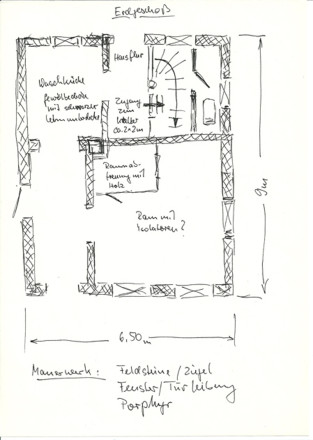 Erdgeschoß
Waschküche
gewölbedecke
mit schwarzer
Lehmunterdecke
Hausflur
Zugang
zum
Keller
ca. 2×2m
Raumab-
trennung mit
Holz
Raum mit
Isolatoren?
9m
6,50m
Mauerwerk: Feldsteine / Zigel
Fenster / Tür leibung
Porphyr